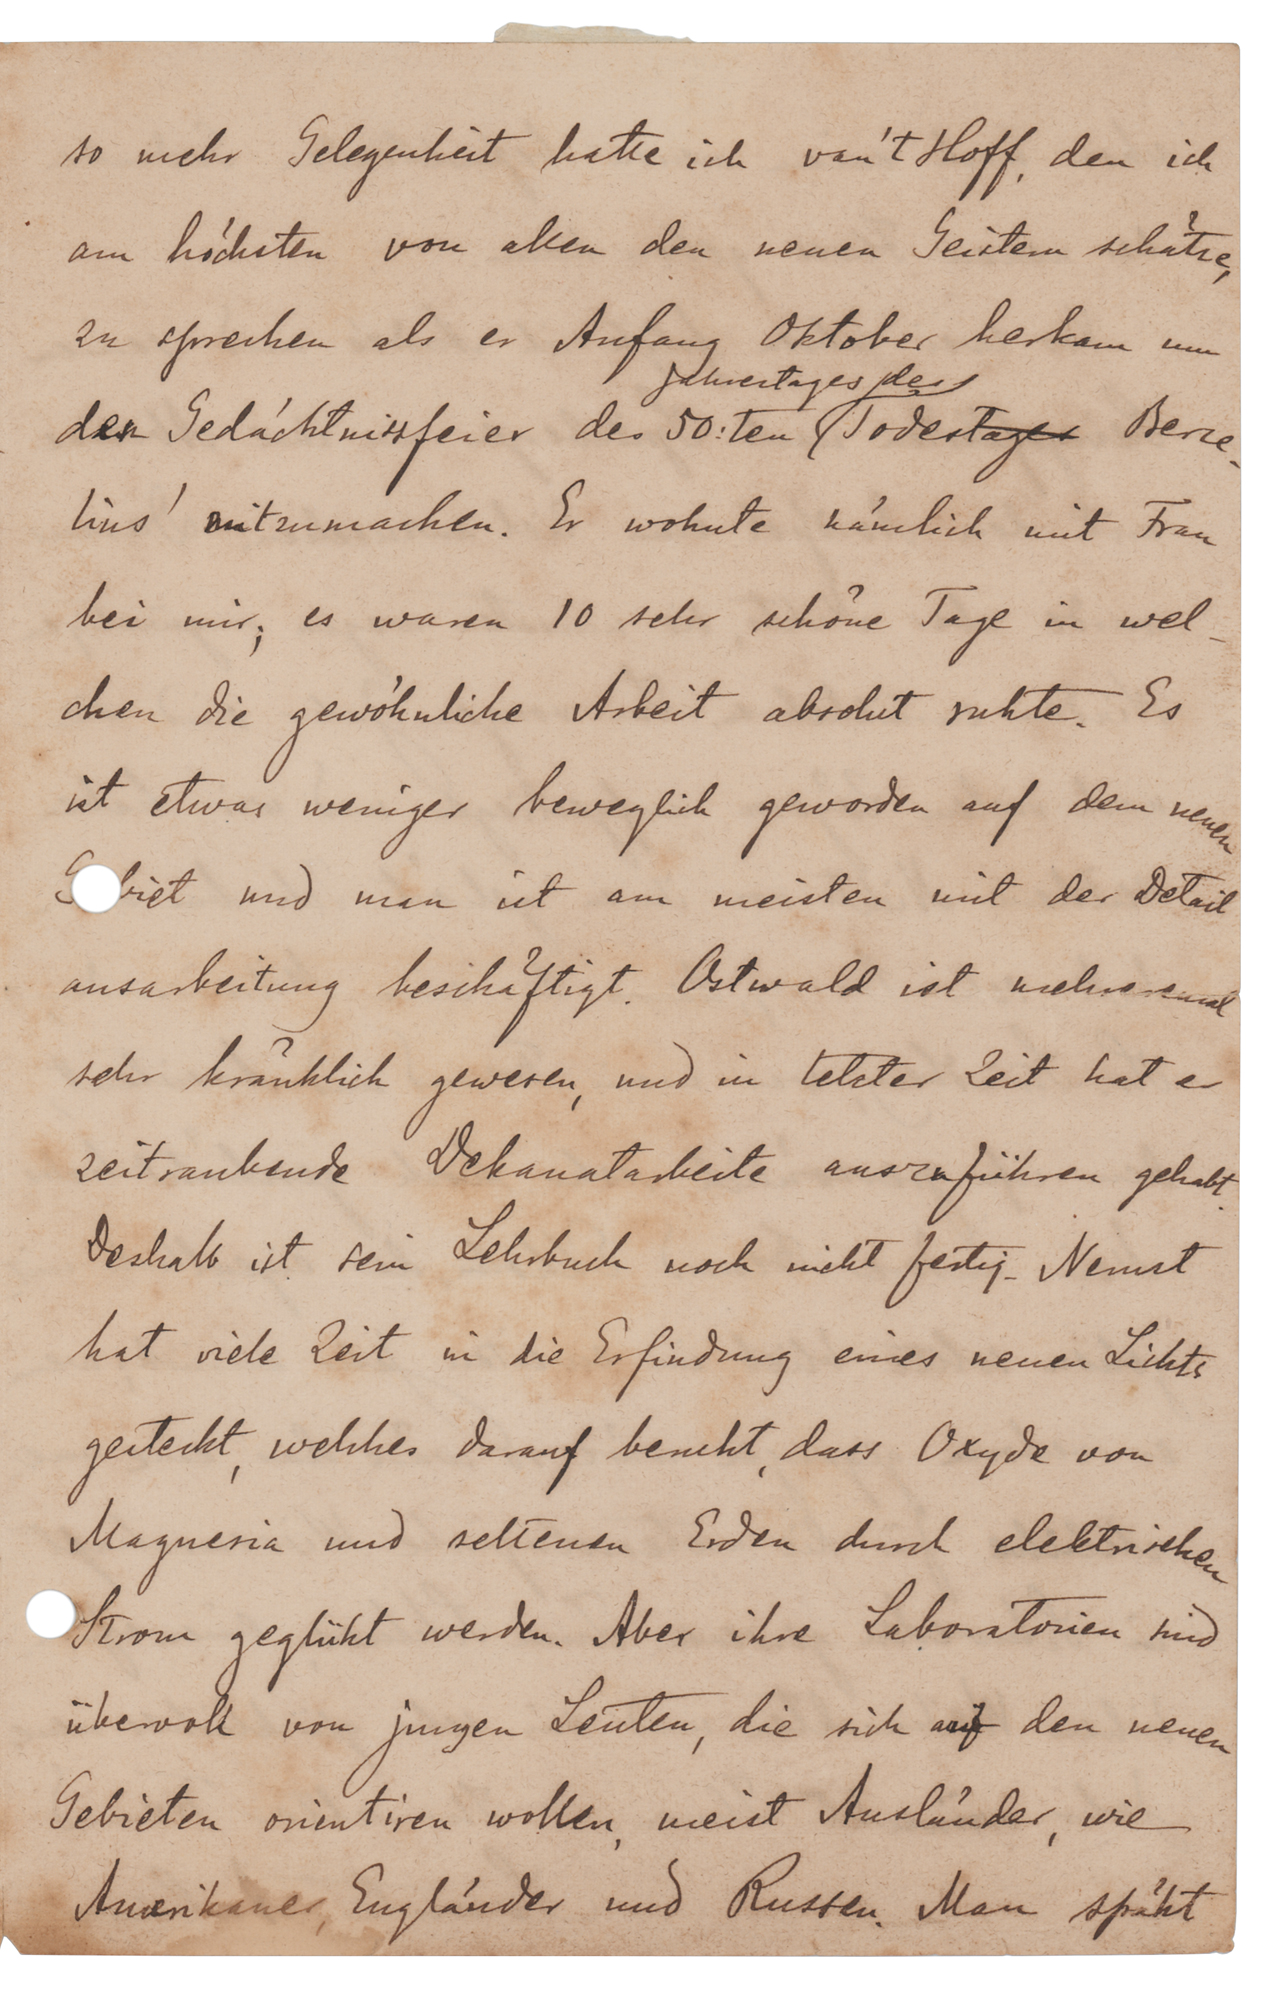 so mehr Gelegenheit hatte ich van't Hoff, den ich
am höchsten von allen den neuen Geistern schätze,
zu sprechen als er Anfang Oktober herkam um
Jahrestages des
den Gedächtnissfeier des 50:ten Todestages Berze-
lius' mitzumachen. Er wohnte nämlich mit Frau
bei mir; es waren 10 sehr schöne Tage in wel-
chen die gewöhnliche Arbeit absolut ruhte. Es
ist etwas weniger beweglich geworden auf dem neuen
Gebiet und man ist am meisten mit der Detail
ausarbeitung beschäftigt. Ostwald ist mehreremal
sehr kränklich gewesen, und in letzter Zeit hat er
zeitraubende Dekanatarbeite auszuführen gehabt.
Deshalb ist sein Lehrbuch noch nicht fertig. Nernst
hat viele Zeit in die Erfindung eines neuen Lichts
gesteckt, welches darauf beruht, dass Oxyde von
Magnesia und seltenen Erden durch elektrischen
Strom geglüht werden. Aber ihre Laboratorien sind
übervoll von jungen Leuten, die sich auf den neuen
Gebieten orientiren wollen, meist Ausländer, wie
Amerikaner, Engländer und Russen. Man späht